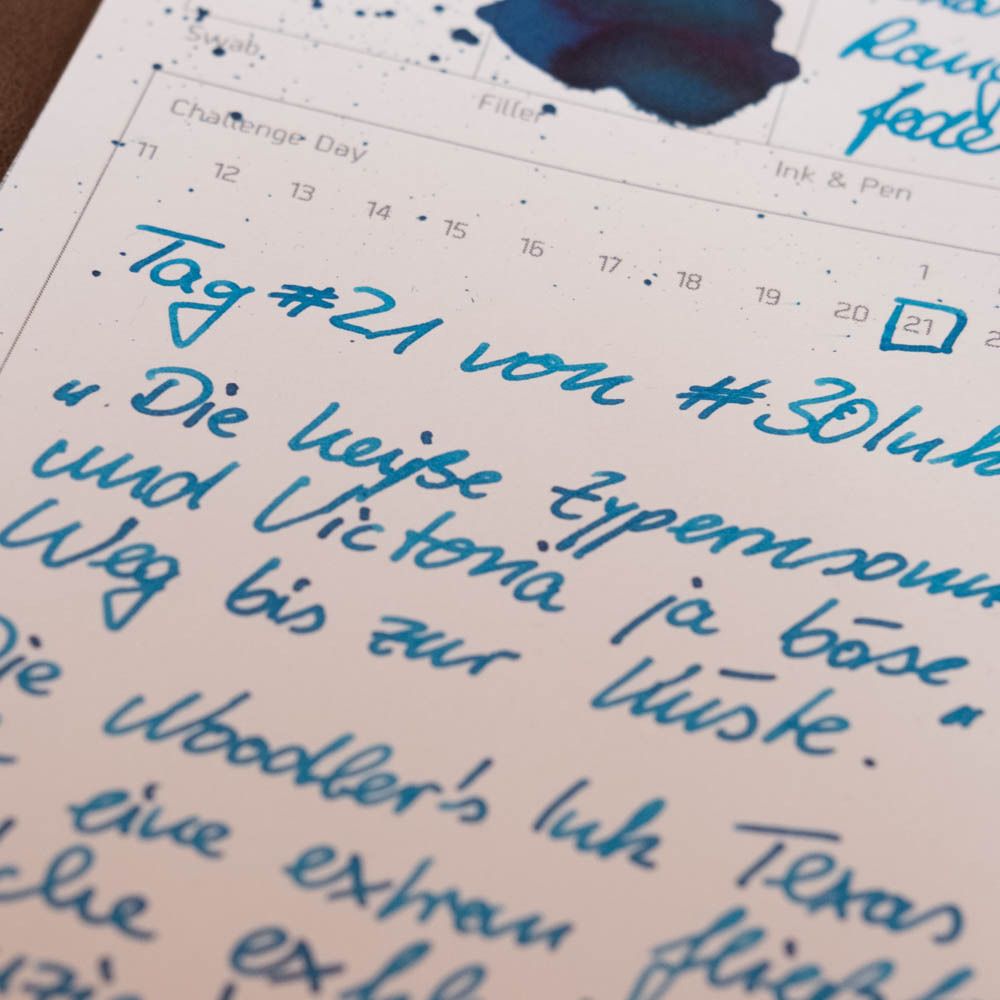 Swab
Filler
Ink & Pen
Challenge Day
11 12 13 14 15 16 17 18 19 20 1 21
Tag #21 von #30Ink
„Die heiße Zypernsonn
und Victoria ja böse"
Weg bis zur Küste.
Die Woodler's Ink Texas
eine extrem fließ